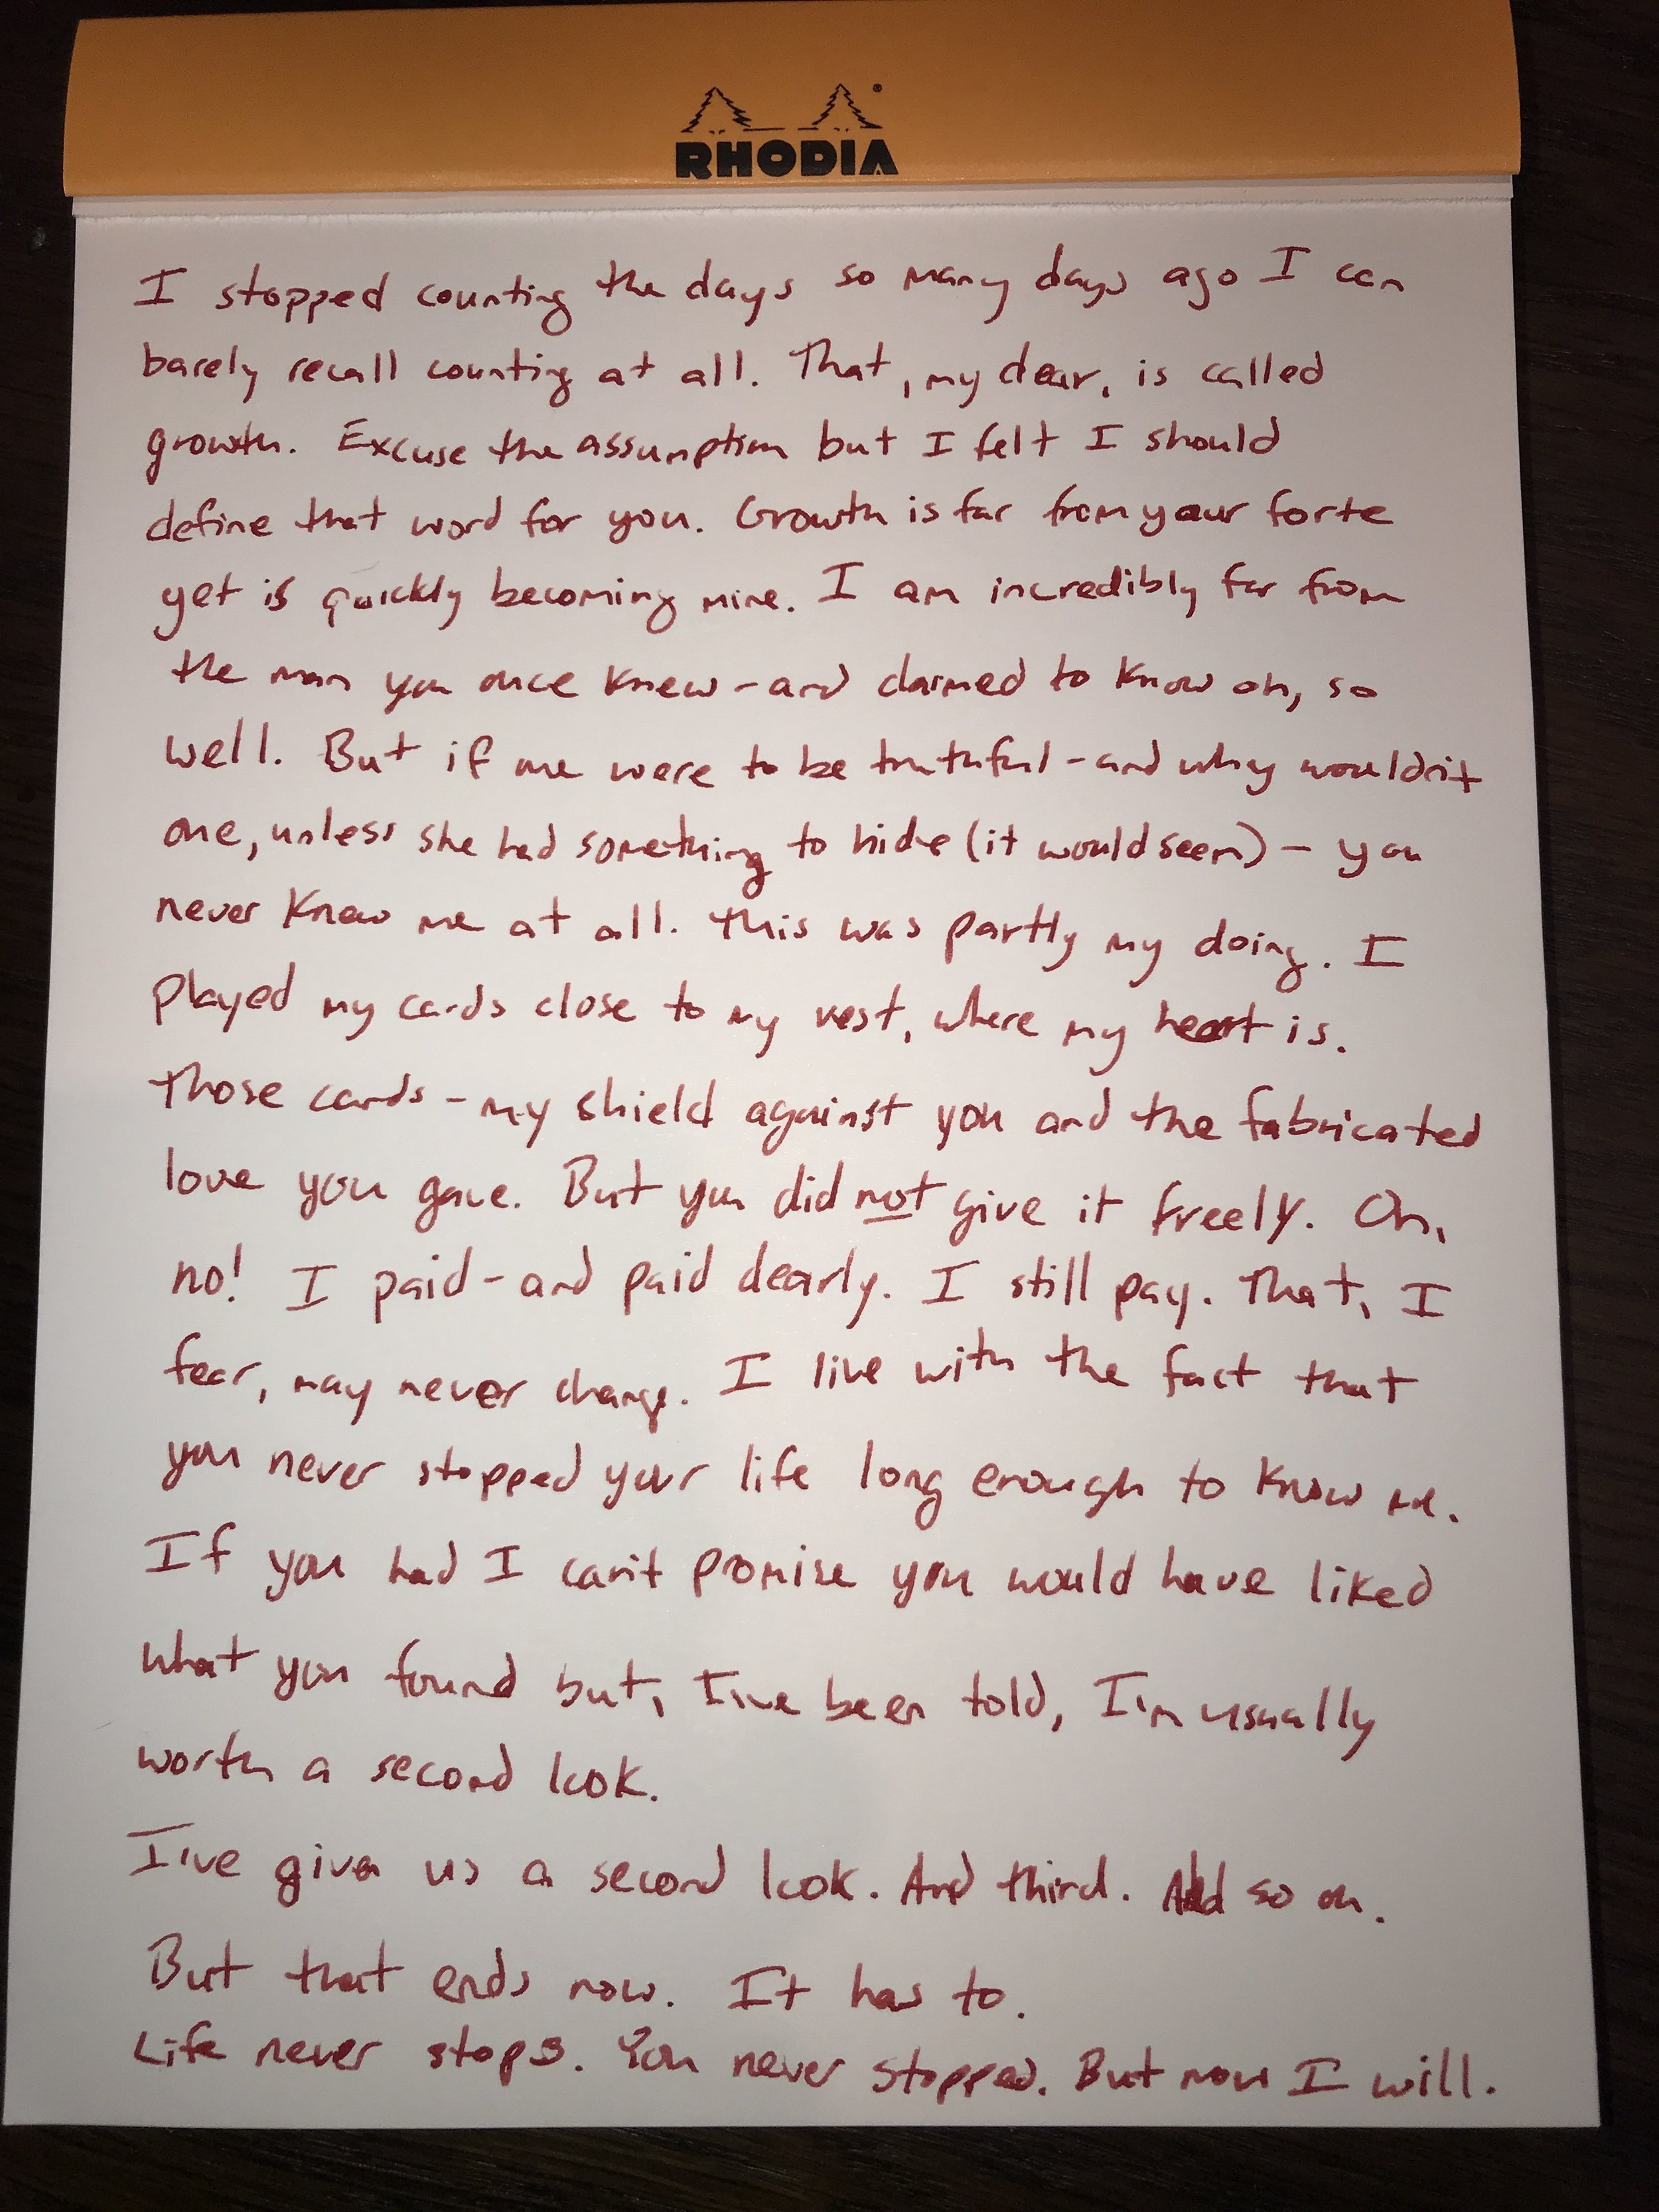 RHODIA
I stopped counting the days so many days ago I can
barely recall counting at all. That, my dear, is called
growth. Excuse the assumption but I felt I should
define that word for you. Growth is far from your forte
yet is quickly becoming mine. I am incredibly far from
the man you once knew - and claimed to know oh, so
well. But if one were to be truthful - and why wouldn't
one, unless she had something to hide (it would seem) - you
never knew me at all. This was partly my doing. I
played my cards close to my vest, where my heart is.
Those cards - my shield against you and the fabricated
love you gave. But you did not give it freely. Oh,
no! I paid - and paid dearly. I still pay. That, I
fear, may never change. I live with the fact that
you never stopped your life long enough to know me.
If you had I can't promise you would have liked
what you found but, I've been told, I'm usually
worth a second look.
I've given us a second look. And third. And so on.
But that ends now. It has to.
Life never stops. You never stopped. But now I will.